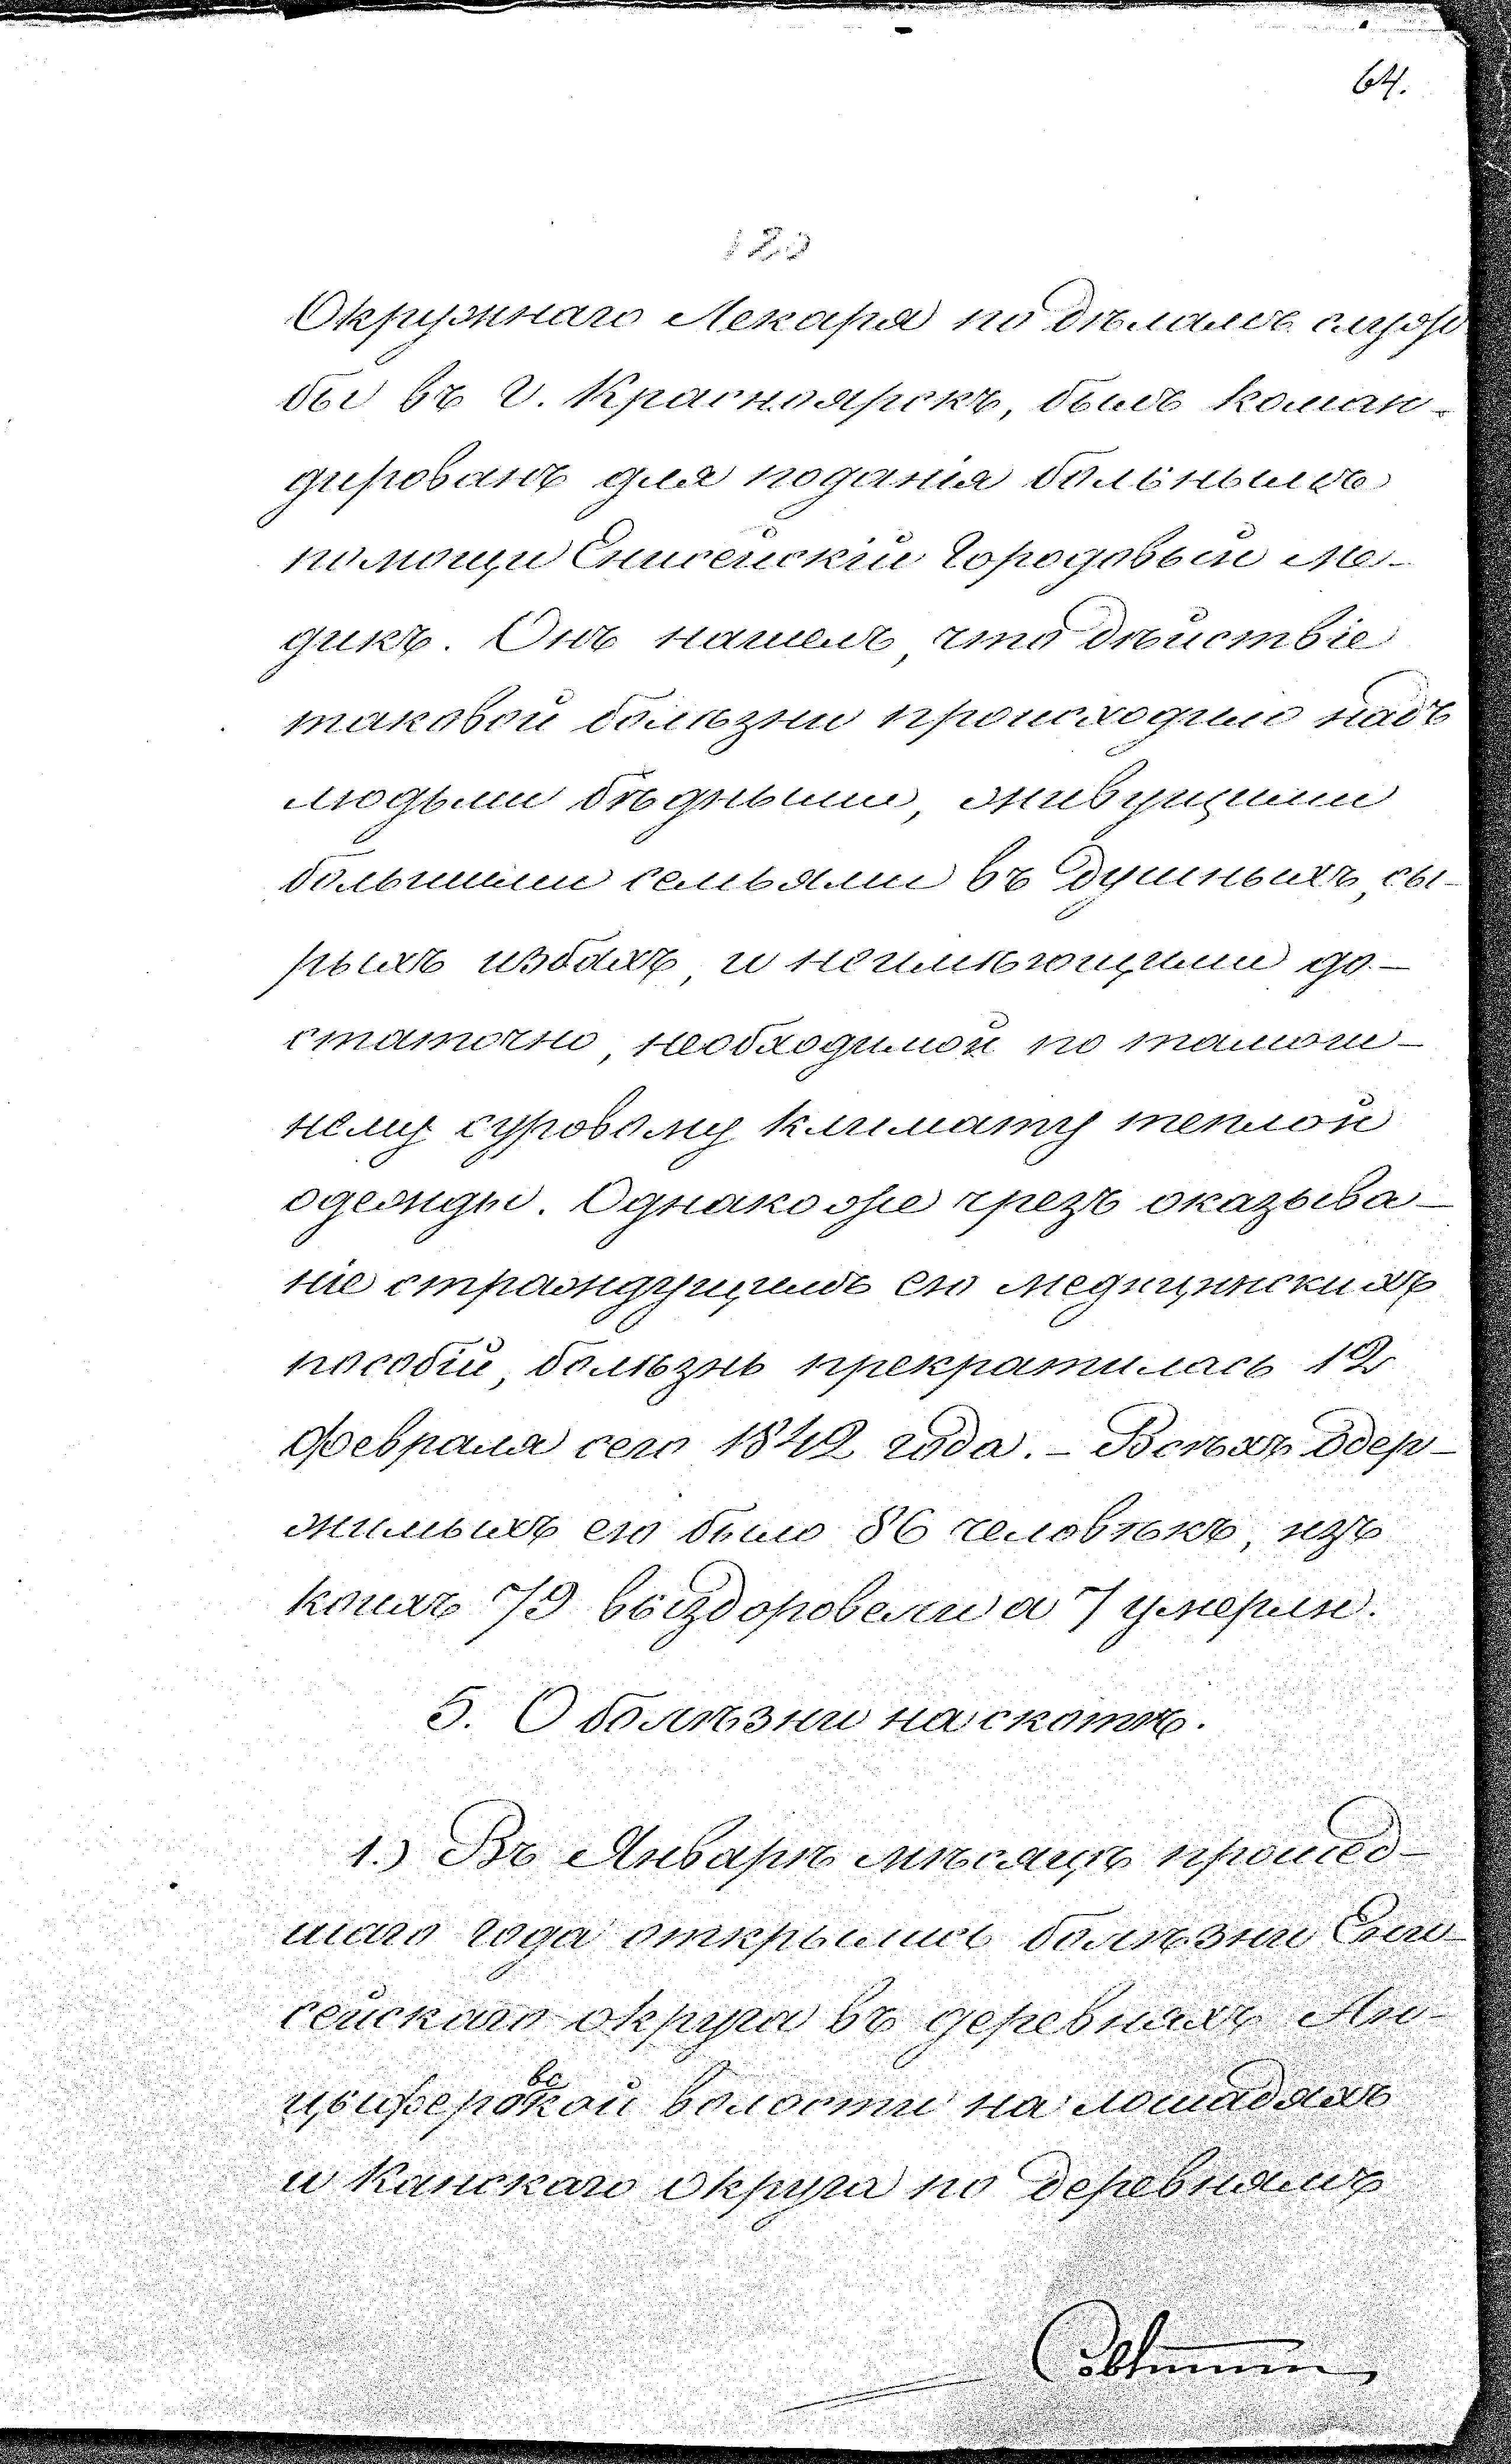 64.
120
Окружнаго Лекаря по дѣламъ служ
бы въ г. Красноярскъ, былъ коман-
дированъ для поданія больнымъ
помощи Енисейскій Городовый Ме-
дикъ. Онъ нашелъ, что дѣйствіе
таковой болѣзни происходило надъ
людьми бѣдными, живущими
большими семьями въ душныхъ, сы-
рыхъ избахъ, и неимѣющими до-
статочно, необходимой по тамош-
нему суровому климату теплой
одежды. Однако же чрезъ оказыва-
ніе страждущимъ ею медицинскихъ
пособій, болѣзнь прекратилась 12
февраля сего 1842 года. - Всѣхъ одер-
жимыхъ ею было 86 человѣкъ, изъ
коихъ 79 выздоровели а 7 умерли.
5. О болѣзни на скотѣ.
1.) Въ Январѣ мѣсяцѣ прошед-
шаго года открылись болѣзни Ени-
сейскаго округа въ деревняхъ Ан-
цыферовской волости на лошадяхъ
и Канскаго округа по деревнямъ